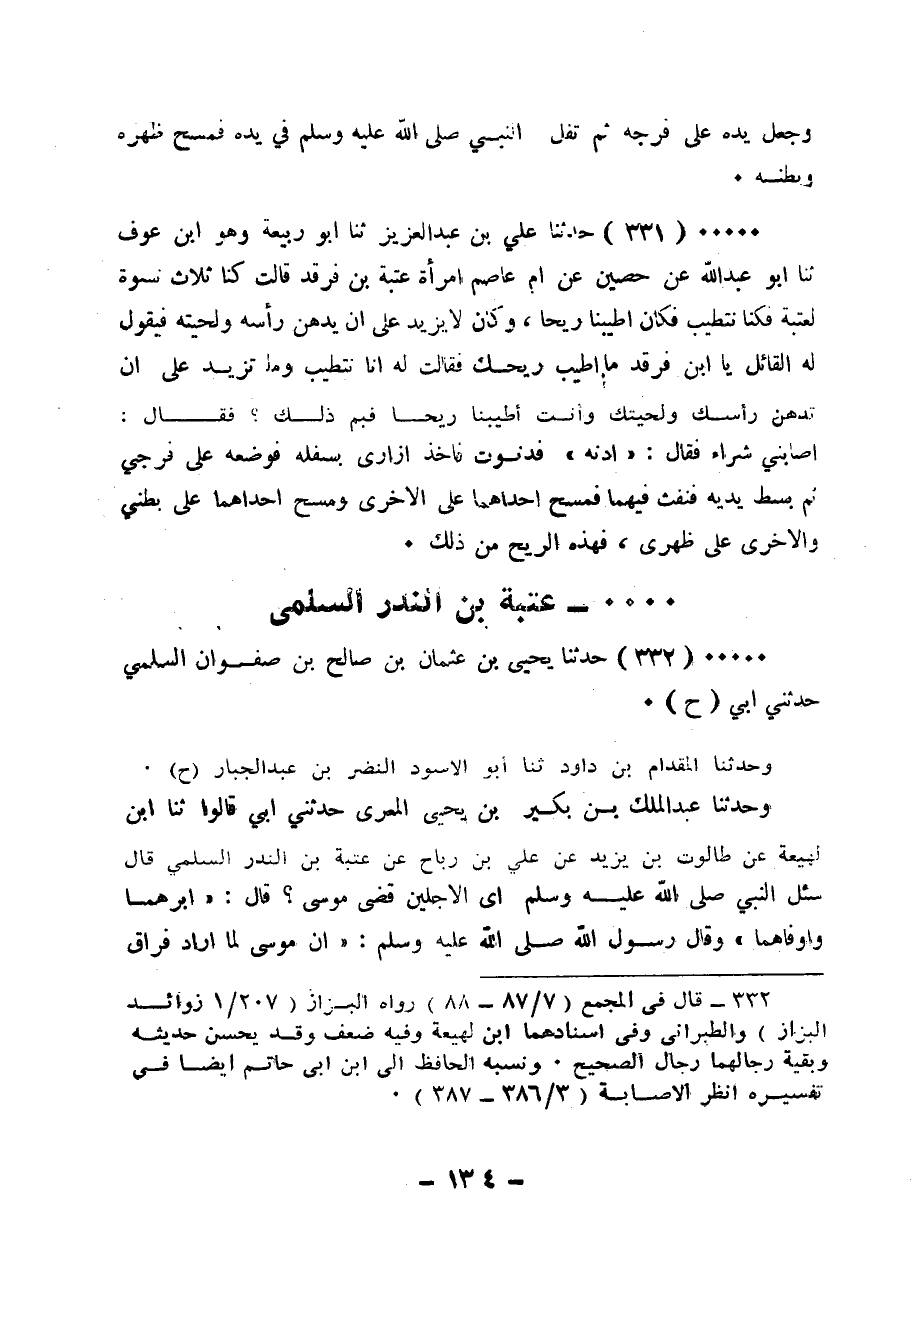 وجعل يده على فرجه ثم تفل النبي صلى الله عليه وسلم في يده فمسح ظهره
وبطنه ٠
٠٠٠٠٠ ( ٣٣١ ) حدثنا علي بن عبدالعزيز ثنا ابو ربيعة وهو ابن عوف
ثنا ابو عبدالله عن حصين عن ام عاصم امرأة عتبة بن فرقد قالت كنا ثلاث نسوة
لعتبة فكنا نتطيب فكان اطيبنا ريحا ، وكان لايزيد على ان يدهن رأسه ولحيته فيقول
له القائل يا ابن فرقد ما اطيب ريحك فقالت له انا نتطيب وما تزيد على ان
تدهن رأسك ولحيتك وأنت أطيبنا ريحا فبم ذلك ؟ فقال :
اصابني شراء فقال : « ادنه » فدنوت فاخذ ازارى بسفله فوضعه على فرجي
ثم بسط يديه فنفث فيهما فمسح احداهما على الاخرى ومسح احداهما على بطني
والاخرى على ظهرى ، فهذه الريح من ذلك ٠
٠٠٠٠ ــ عتبة بن الندر السلمى
٠٠٠٠٠ ( ٣٣٢ ) حدثنا يحيى بن عثمان بن صالح بن صفوان السلمي
حدثني ابي ( ح ) ٠
وحدثنا المقدام بن داود ثنا أبو الاسود النضر بن عبدالجبار (ح) ٠
وحدثنا عبدالملك بن بكير بن يحيى المعرى حدثني ابي قالوا ثنا ابن
لهيعة عن طالوت بن يزيد عن علي بن رباح عن عتبة بن الندر السلمي قال
سئل النبي صلى الله عليه وسلم اى الاجلين قضى موسى ؟ قال : « ابرهما
واوفاهما » وقال رسول الله صلى الله عليه وسلم : « ان موسى لما اراد فراق
٣٣٢ ــ قال في المجمع ( ٨٧/٧ ــ ٨٨ ) رواه البزاز ( ١/٢٠٧ زوائد
البزاز ) والطبرانى وفى اسنادهما ابن لهيعة وفيه ضعف وقد يحسن حديثه
وبقية رجالهما رجال الصحيح ٠ ونسبه الحافظ الى ابن ابى حاتم ايضا في
تفسيره انظر الاصابة ( ٣٨٦/٣ ــ ٣٨٧ ) ٠
ــ ١٣٤ ــ